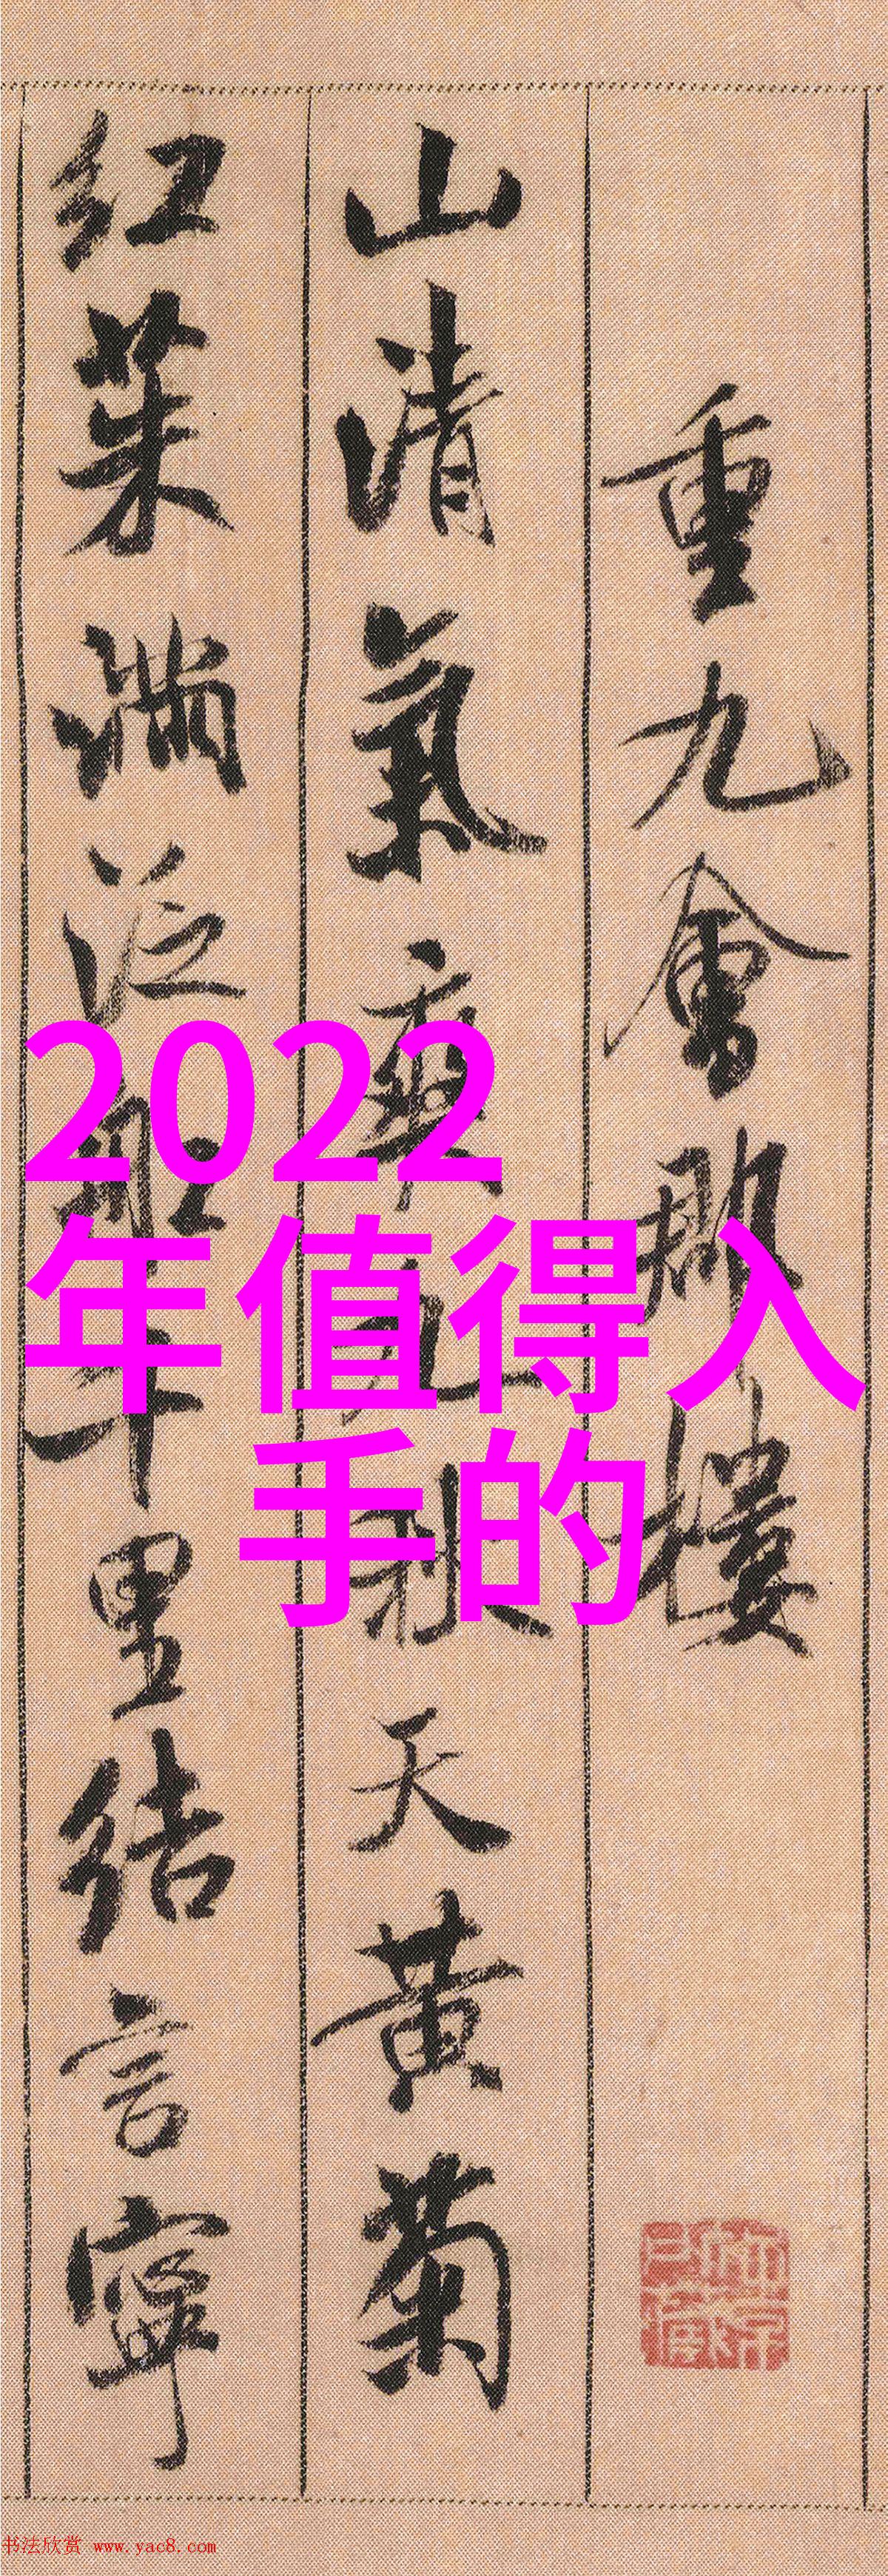 重九會郡樓
山清氣爽九秋天黄菊
紅茱滿泛船千里結言寧
2022
年值得入
手的
书法欣赏 www.yac8.com